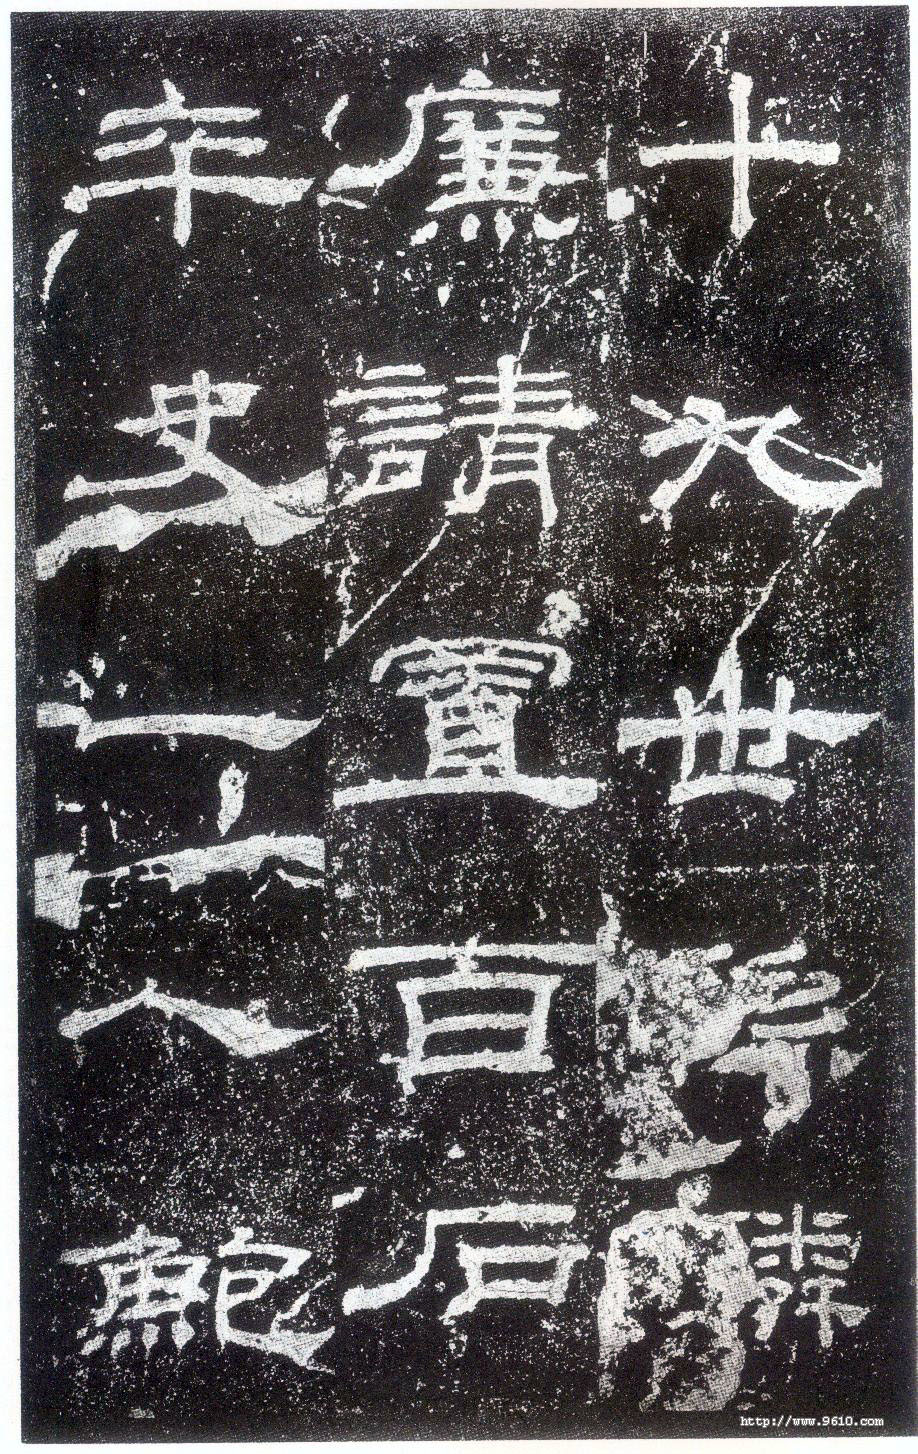 十九世孫麟
廉請置百石
卒史一人鮑
http://www.9610.com